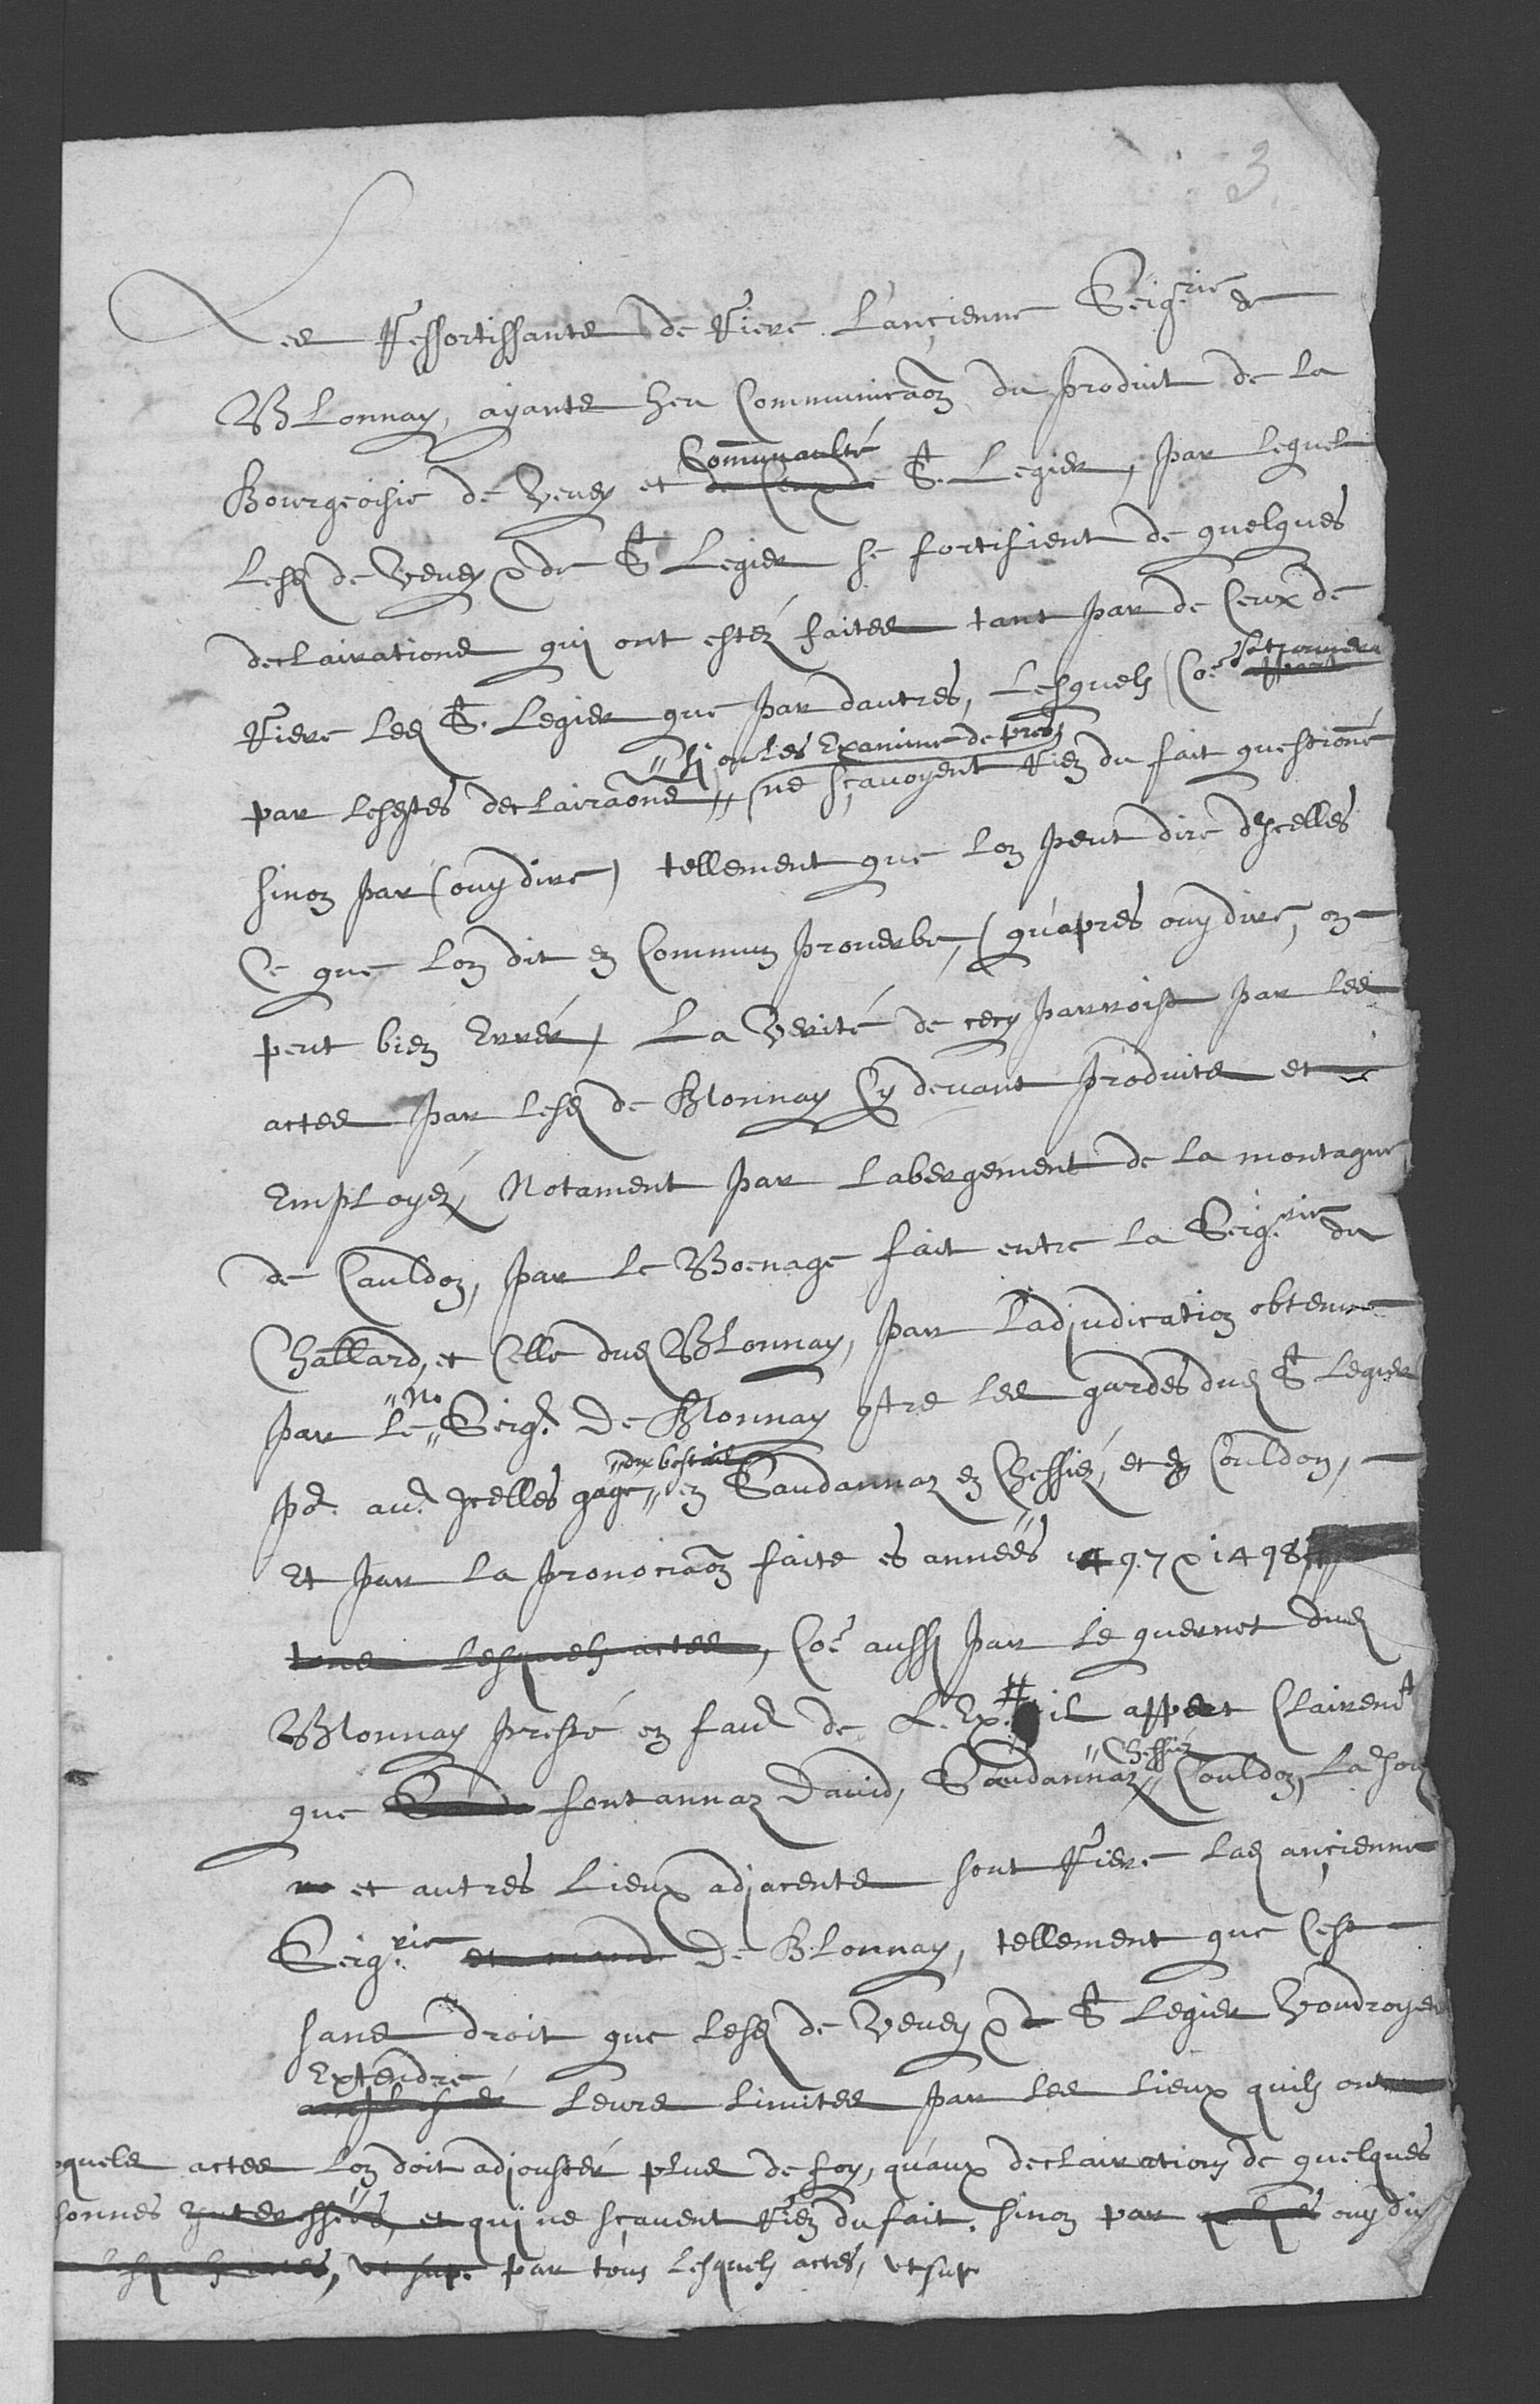 3
Les Ressortissants de Riere Lancienne Seig.rie de
Blonnay, ayants heu Communicãon du produit de la
Communaulté
Bourgeoisie de Vevey et de Ceux de St. Legier, par lequel
Lesd de Vevey & de St Legier se fortifient de quelques
declairations qui ont estéz faites tant par de Ceux de
se trouvera
Riere led St. Legier que par dautres, Lesquels (Coe
"si on les Examine de pres
par lesdites declairãons" (ne sçavoyent Rien du fait questioné
sinon par (ouy dire) tellement que lon peut dire dycelles
Ce que lon dit en Commun proverbe, (qu'apres ouy dire, on
peut bien Errér, La Verité de cecy parroist par les
actes par lesd de Blonnay Cy devant produits et
Employéz, Notament par Labergement de la montagne
de Cauldon, par le Boenage fait entre la Seig.rie du
Challard, et Celle dud Blonnay, par Ladjudication obtenue
"No
par Le" Seigr. De Blonnay contre les gardes dud St Legier
"du bestail
pr. avr. ycelles gagé" en Saudannaz en Chessiéz, et en Couldon,
Et par la pronociãon faite es années 1497 & 1498
lesquels actes, Coe aussi par le quernet dud
Blonnay presté en favr de L. Ex. # il appert Clairemt
"Chessiéz
que Sauda fontannaz David, Saudannaz" Couldon, La Joux
et autres Lieux adjacents sont Riere lad ancienne
Seig.rie et mand De Blonnay, tellement que Cest
sans droit que lesd de Vevey & de St Legier Voudroyent
Extendre
Leurs limites par les lieux quils ont
quels actes lon doit adjouster plus de foy, qu'aux declairations de quelques
sonnes Interessées, et qui ne sçavent Rien du fait. sinon par ouy dir
lesquels actes, ut sup. par tous lesquels actes, ut sup